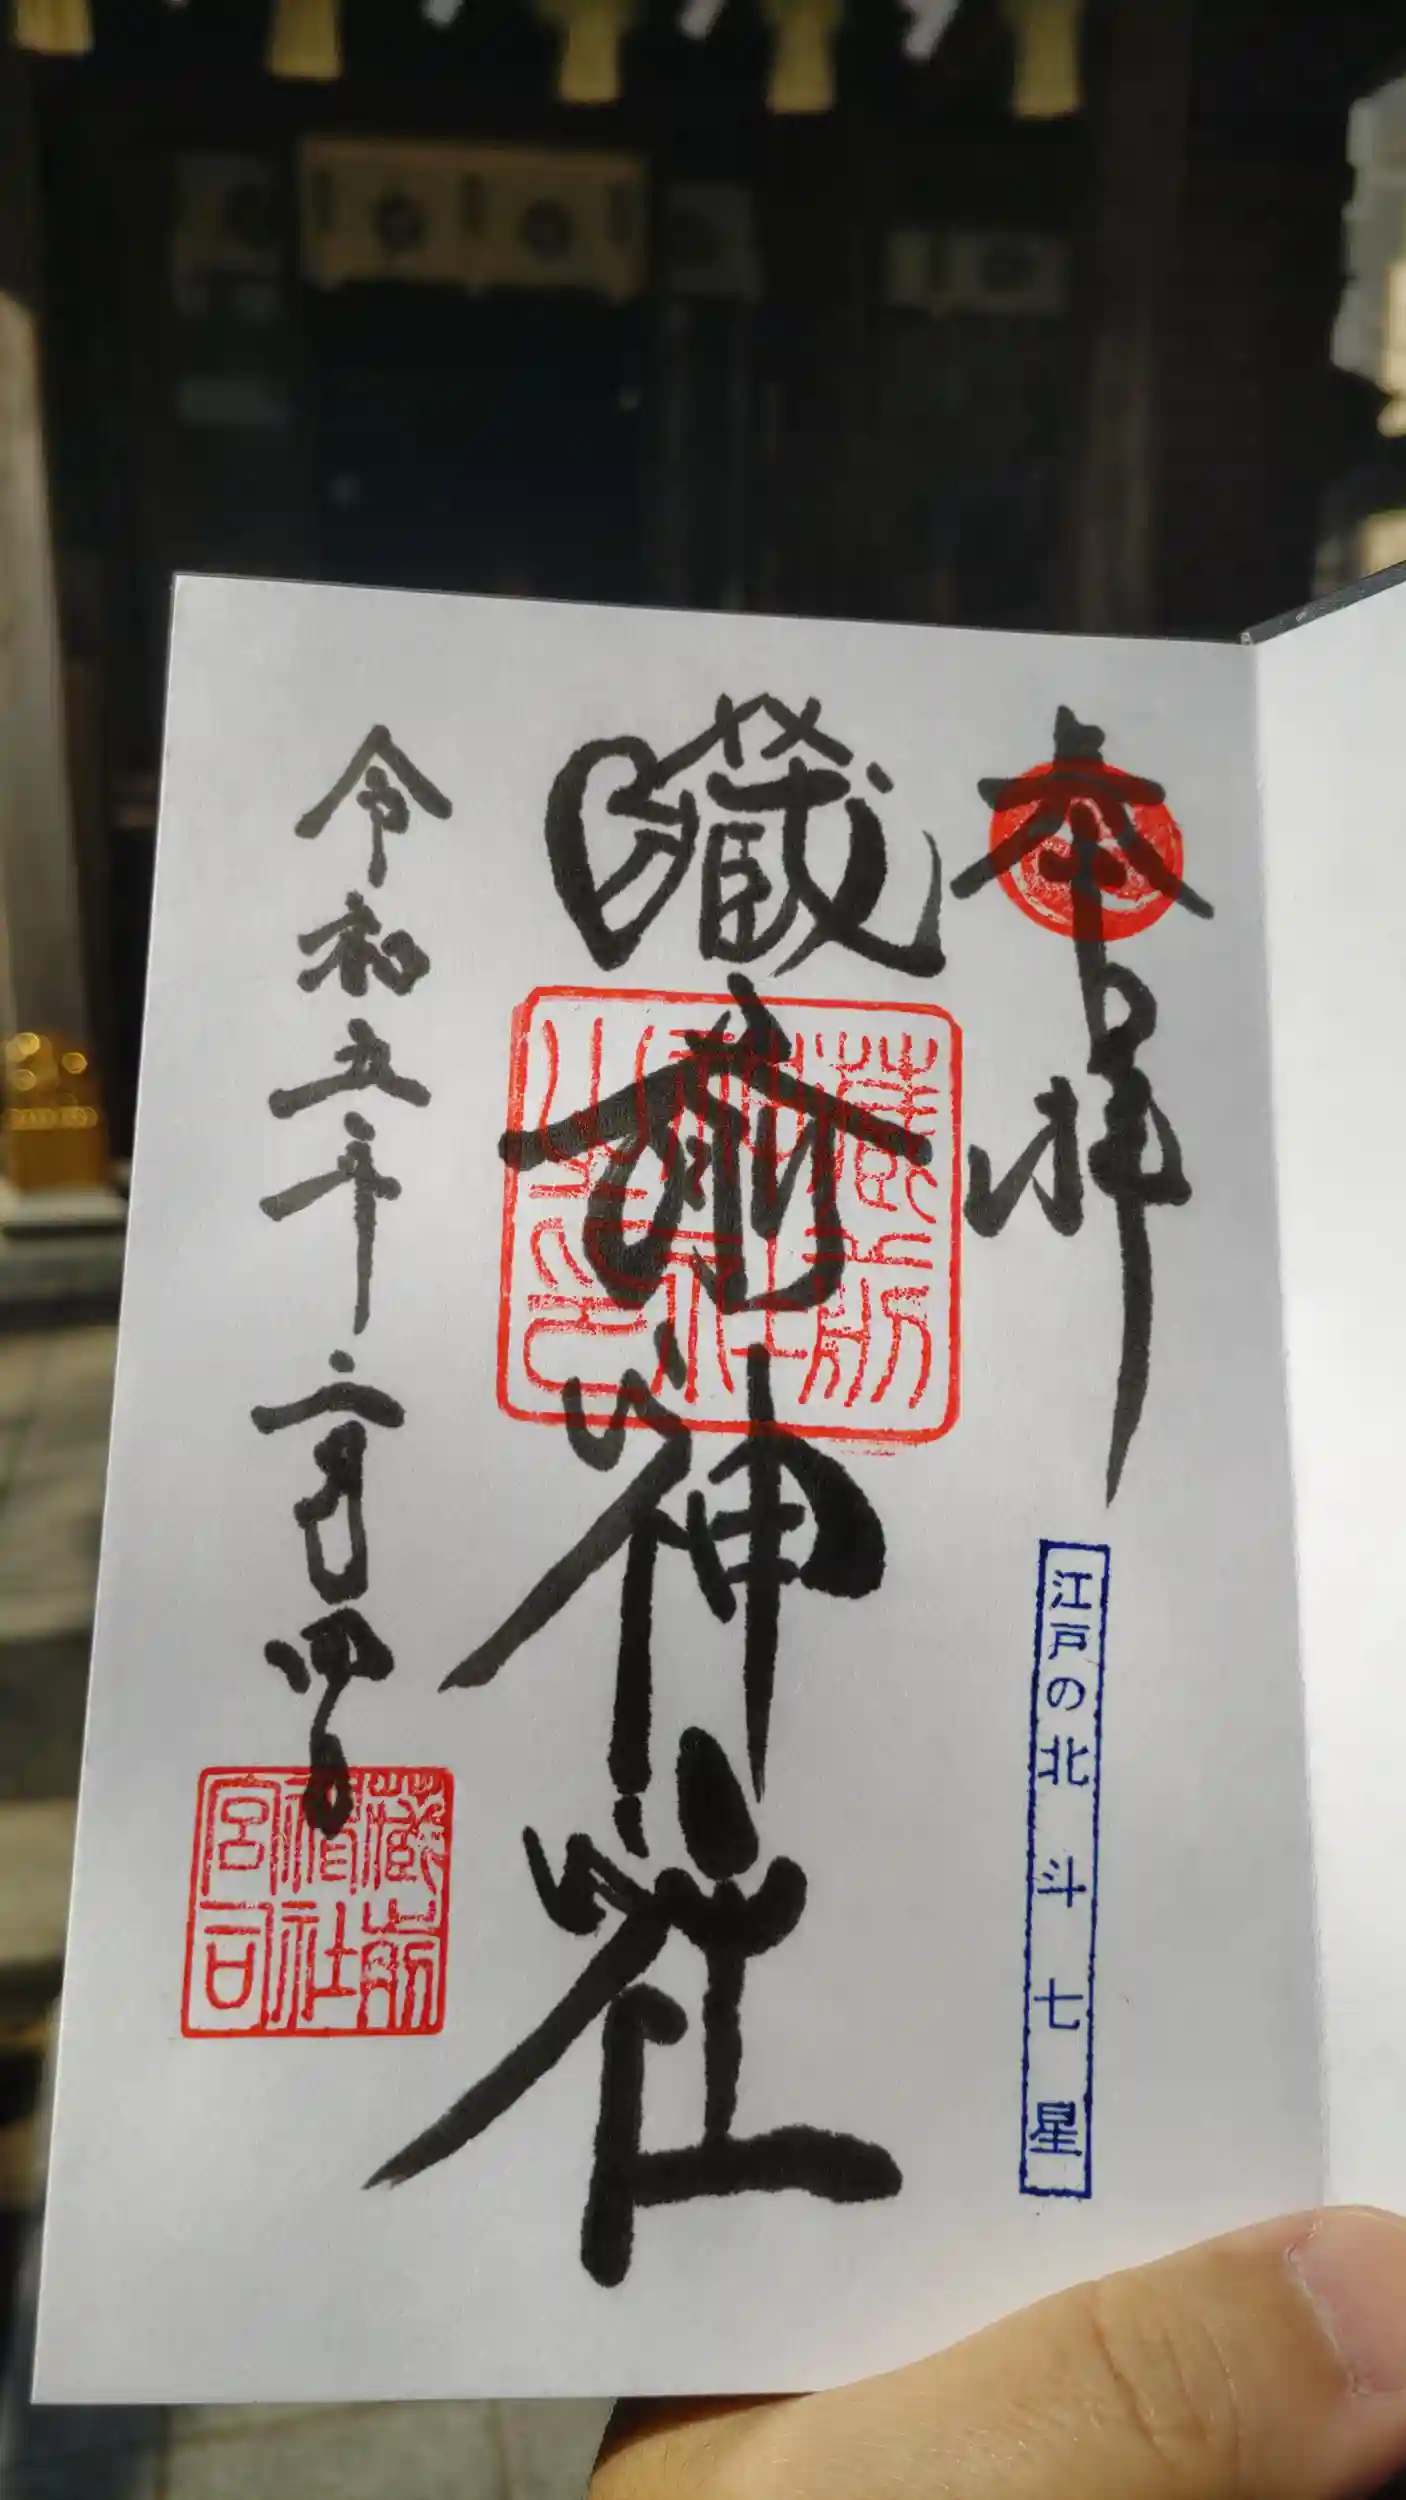 奉拝
江戸の北斗七星
藏前神社
蔵前
神社
之印
令和五年二月四日
蔵前
神社
宮司